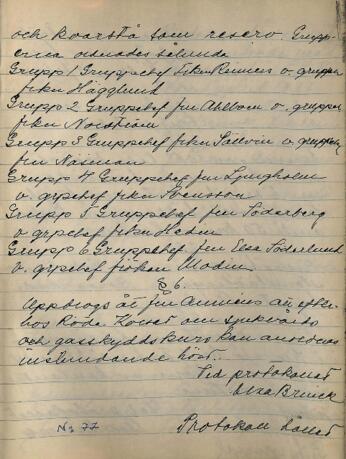 och kvarstå som reserv. Grupp-
erna ordnades sålunda
Grupp 1 Gruppchef frkn v. gruppch
frkn Hägglund
Grupp 2 Gruppchef fru Ahlbom v. gruppch
frkn Nordström
Grupp 3 Gruppchef frkn v. gruppch
fru Näsman
Grupp 4 Gruppchef fru Ljungholm
v. grpchef frkn Svensson
Grupp 5 Gruppchef fru Söderberg
v grpchef frkn Hedin
Grupp 6 Gruppchef fru Elsa Söderlund
v. grpchef fröken Modin
§ 6.
Uppdrogs åt fru att efter-
höra Röda Korset om sjukvårds
och gasskyddskurs kan anordnas
instundande höst.
Vid protokollet
Brinck
No 77
Protokoll hållet